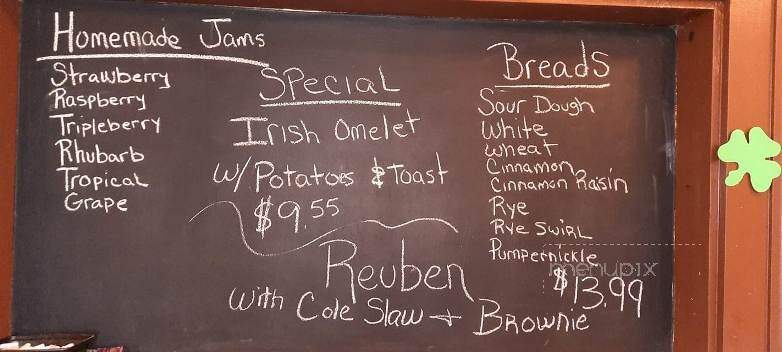 Homemade Jams
Strawberry
Raspberry
Tripleberry
Rhubarb
Tropical
Grape
Special
Irish Omelet
w/ Potatoes & Toast
$9.55
Reuben
with Cole Slaw + Brownie
$13.99
Breads
Sour Dough
White
Wheat
Cinnamon
Cinnamon Raisin
Rye
Rye Swirl
Pumpernickle
menupix